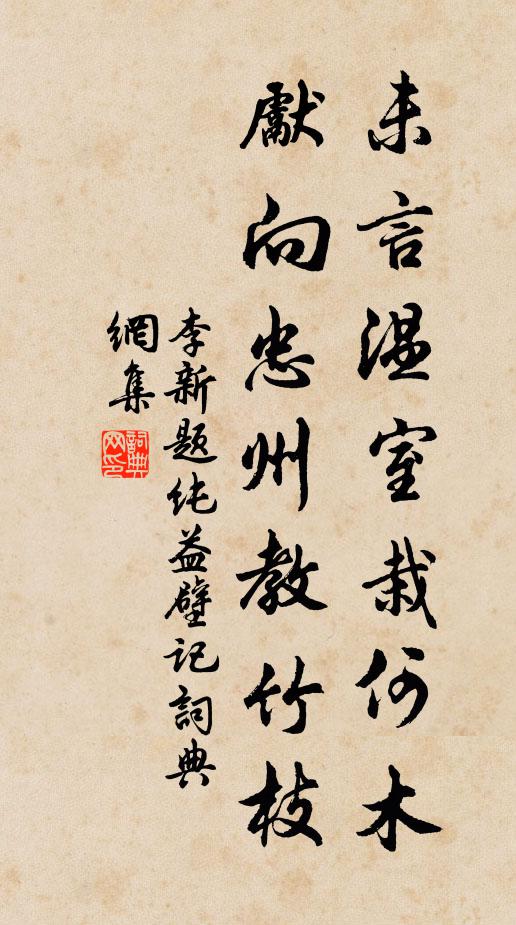 未言温室栽何木
獻向忠州教竹枝
李新题纯益壁记詞典
網集
詞典
网印